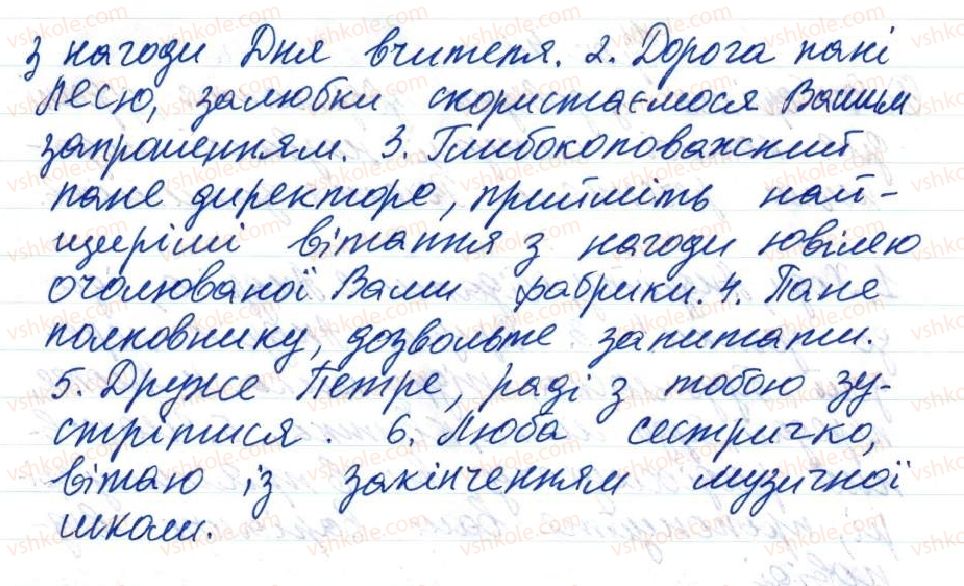 з нагоди Дня вчителя. 2. Дорога пані
Лесю, залюбки скористаємося Вашим
запрошенням. 3. Глибокоповажсний
пане директоре, прийміть най-
щиріші вітання з нагоди ювілею
очолюваної Вами фабрики. 4. Пане
полковнику, дозвольте запитати.
5. Друже Петре, раді з тобою зу-
стрітися. 6. Люба сестричко,
вітаю із закінченням музичної
школи.